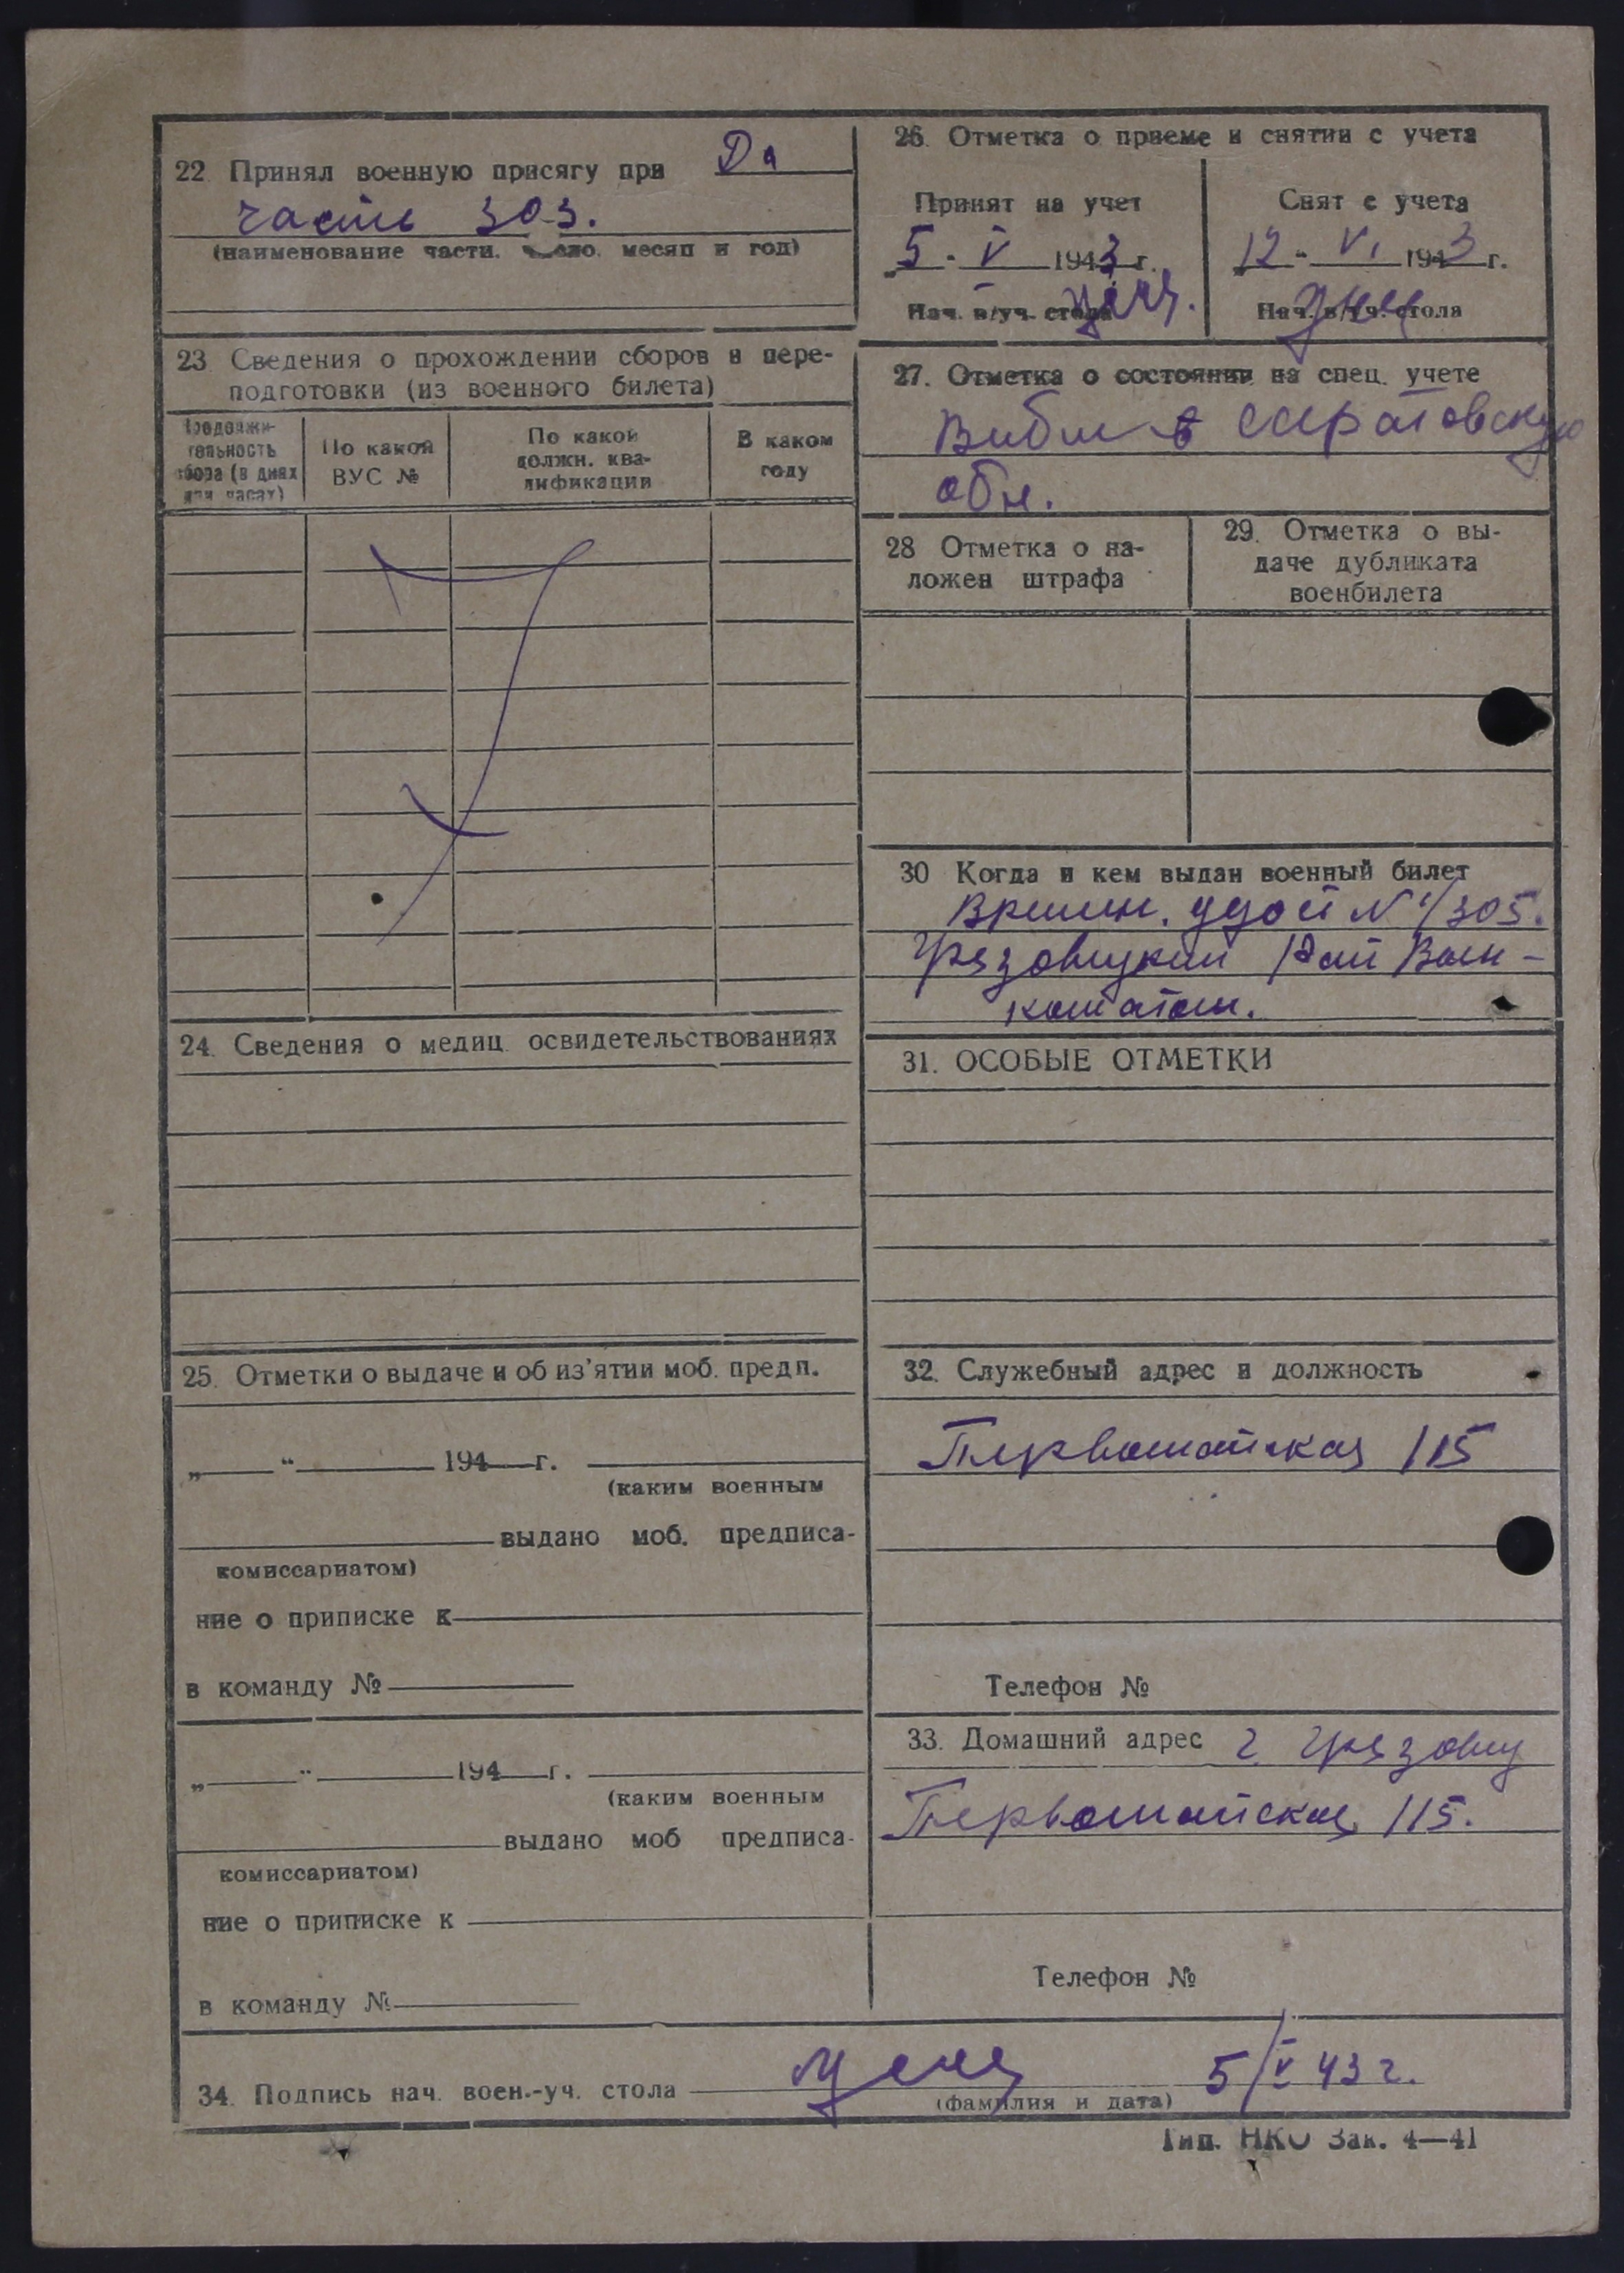 22. Принял военную присягу при Да
часть 303.
(наименование части, число, месяц и год)
23. Сведения о прохождении сборов и пере-
подготовки (из военного билета)
Продолжи-
тельность
сбора (в днях
или часах)
По какой
ВУС №
По какой
должн. ква-
лификации
В каком
году
24. Сведения о медиц. освидетельствованиях
25. Отметки о выдаче и об из'ятии моб. предп.
„ “ 194 г.
(каким военным
выдано моб. предписа-
комиссариатом)
ние о приписке к
в команду №
„ “ 194 г.
(каким военным
выдано моб предписа-
комиссариатом)
ние о приписке к
в команду №
26. Отметка о приеме и снятии с учета
Принят на учет
5 - V 1943 г.
Нач. в/уч. стола
Снят с учета
12 - VI 1943 г.
Нач. в/уч. стола
27. Отметка о состоянии на спец. учете
Выбыл в Саратовскую
обл.
28 Отметка о на-
ложен штрафа
29. Отметка о вы-
даче дубликата
военбилета
30 Когда и кем выдан военный билет
Времен. удост №1/305.
Грязовецкий Рай Воен-
коматом.
31. ОСОБЫЕ ОТМЕТКИ
32. Служебный адрес и должность
Первомайская 115
Телефон №
33. Домашний адрес г. Грязовец
Первомайская 115.
Телефон №
34. Подпись нач. воен.-уч. стола 5/V 43 г.
(фамилия и дата)
Тип. НКО Зак. 4—41